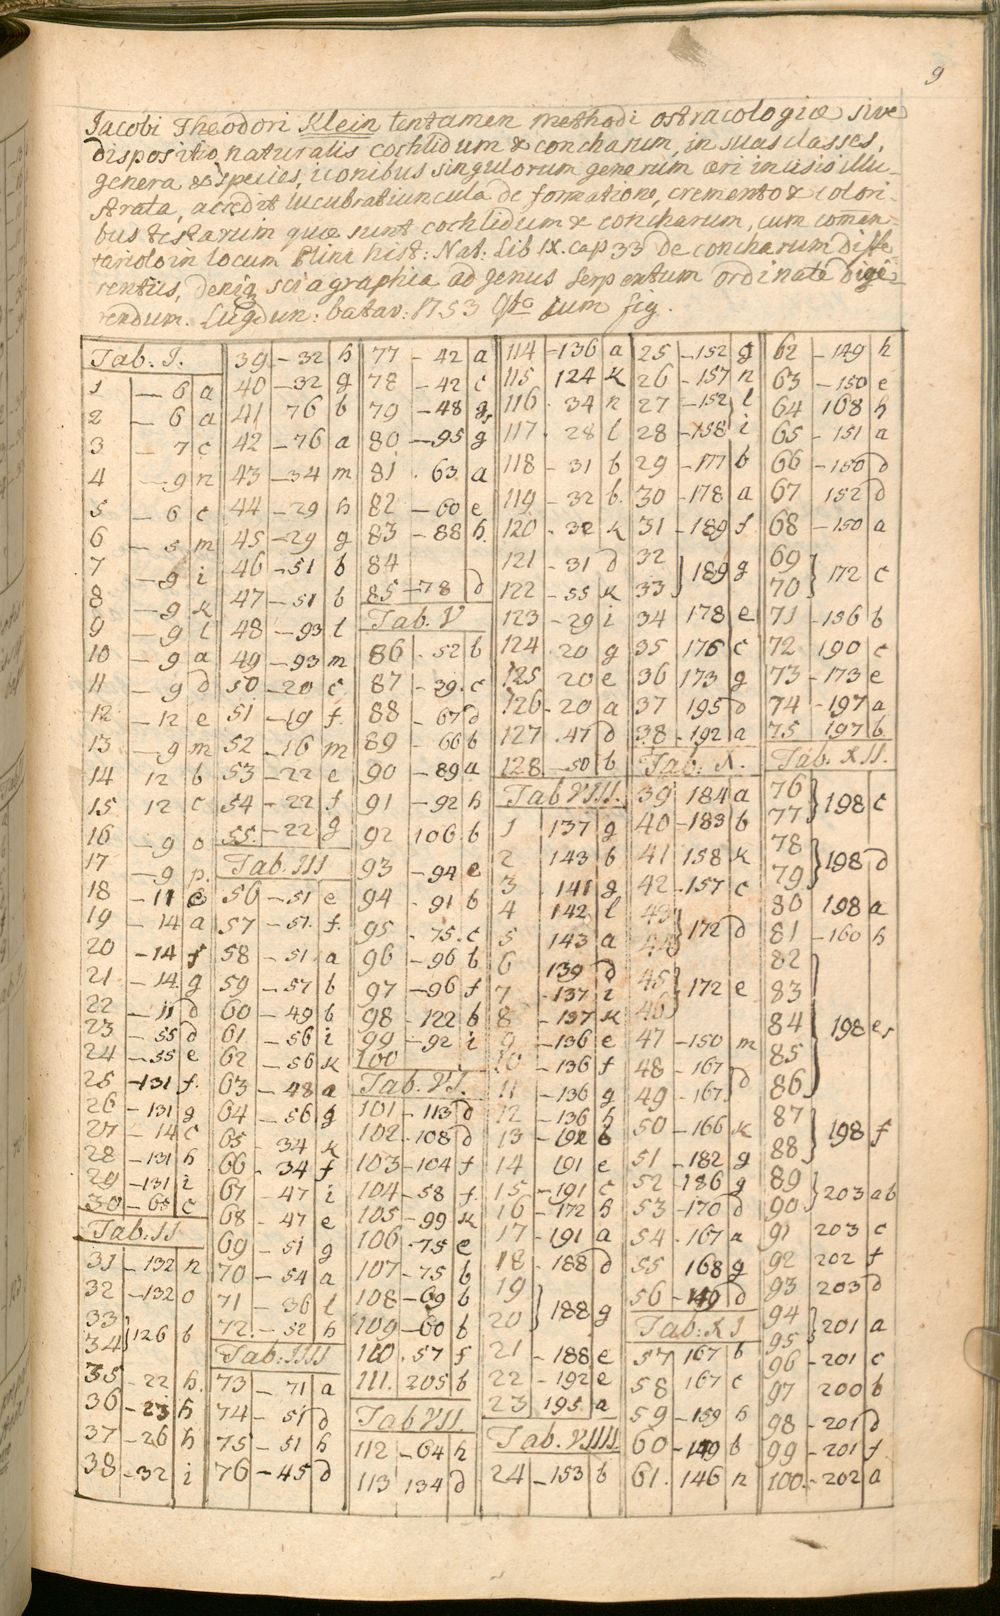 9
Jacobi Theodori Klein tentamen methodi ostracologiæ sive
dispositio naturalis cochlidum & concharum, in suas classes,
genera & species, iconibus singulorum generum æri incisis illu-
strata, accedit lucubratiuncula de formatione, cremento & colori-
bus testarum quæ sunt cochlidum & concharum, cum comen-
tariolo in locum Plinii hist: Nat: Lib IX. cap 33 de concharum diffe
rentiis, deniq sciagraphia ad genus serpentum ordinate dige-
rendum. Lugdun: batav: 1753 4to cum fig.
Tab. I.
1 — 6 a
2 — 6 a
3 — 7 c
4 — 9 n
5 — 6 c
6 — 5 m
7 — 9 i
8 — 9 k
9 — 9 l
10 — 9 a
11 — 9 d
12 — 12 e
13 — 9 m
14 12 b
15 12 c
16 — 9 o
17 — 9 p.
18 — 11 e
19 — 14 a
20 - 14 f
21 - 14 g
22 — 11 d
23 — 55 d
24 — 55 e
25 - 131 f.
26 - 131 g
27 - 14 c
28 - 131 h
29 - 131 i
30 - 65 c
Tab. II
31 - 132 n
32 - 132 o
33
34 } 126 b
35 - 22 h.
36 - 23 h
37 - 26 h
38 - 32 i
39 - 32 h
40 - 32 g
41 76 b
42 - 76 a
43 - 34 m
44 - 29 h
45 - 29 g
46 - 51 b
47 - 51 b
48 - 93 l
49 - 93 m
50 - 20 c
51 - 19 f.
52 - 16 m
53 - 22 e
54 - 22 f
55. - 22 g
Tab. III
56 - 51 e
57 - 51. f.
58 - 51. a
59 - 57 b
60 - 49 b
61 - 56 i
62 - 56 k
63 - 48 a
64 - 56 g
65 - 34 k
66 - 34 f
67 - 47 i
68 - 47 e
69 - 51 g
70 - 54 a
71 - 36 l
72. - 52 h
Tab. IIII
73 - 71 a
74 - 51 d
75 - 51 h
76 - 45 d
77 - 42 a
78 - 42 c
79 - 48 g
80 - 95 g
81 . 63 a
82 - 60 e
83 - 88 h.
84
85 - 78 d
Tab. V
86 . 52 b
87 - 39. c
88 - 67 d
89 - 66 b
90 - 89 a
91 - 92 h
92 106. b
93 - 94 e
94 - 91 b
95 - 75. c
96 - 96 b
97 - 96 f
98 - 122 b
99 - 92 i
100
Tab. VI.
101 - 113 d
102 - 108 d
103 - 104 f
104 - 58 f.
105 - 99 k
106 - 75 e
107 - 75 b
108 - 69 b
109 - 60 b
110 . 57 f
111. 205 b
Tab VII.
112 - 64 h
113 134 d
114 - 136 a
115 124 k
116 . 34 n
117 . 28 l
118 - 31 b
119 - 32 b.
120 - 32 k
121 - 31 d
122 - 55 k
123 - 29 i
124 . 20 g
125 20 e
126 - 20 a
127 . 47 d
128. - 50 b
Tab VIII.
1 137 g
2 143 b
3 . 141 g
4 142. l
5 143 a
6 139 d
7 - 137 i
8 - 137 k
9 - 136 e
10 - 136 f
11 - 136 g
12 - 136 h
13 - 192 b
14 191 e
15 - 191 c
16 - 172 h
17 - 191 a
18 . 188 d
19
20 } 188 g
21 - 188 e
22 - 192 e
23 195. a
Tab. VIIII
24 - 153 b
25 - 152 g
26 - 157 n
27 - 152 l
28 - 158 i
29 - 177 b
30 - 178 a
31 - 189 f
32
33 } 189 g
34 178 e
35 176 c
36 173 g
37 195 d
38 - 192 a
Tab. X.
39 184 a
40 - 183 b
41 158 k
42 - 157 c
43
44 } 172 d
45
46 } 172 e
47 - 150 m
48 - 167
49 - 167 d
50 - 166 k
51 - 182 g
52 - 186 g
53 - 170 d
54 - 167 a
55 168 g
56 - 149 d
Tab: XI
57 167 b
58 167 c
59 - 159 h
60 - 149 b
61. 146 n
62 - 149 h
63 - 150 e
64 168 h
65 - 151 a
66 - 150 d
67 152 d
68 - 150 a
69
70 } 172 c
71 - 156 b
72 190 c
73 - 173 e
74 - 197 a
75 197 b
Tab. XII.
76
77 } 198 c
78
79 } 198 d
80 198 a
81 - 160 h
82
83
84 198 e
85
86
87
88 } 198 f
89
90 } 203 ab
91 203 c
92 202 f
93 203 d
94
95 } 201 a
96 - 201 c
97 200 b
98 - 201 d
99 - 201 f
100. - 202 a